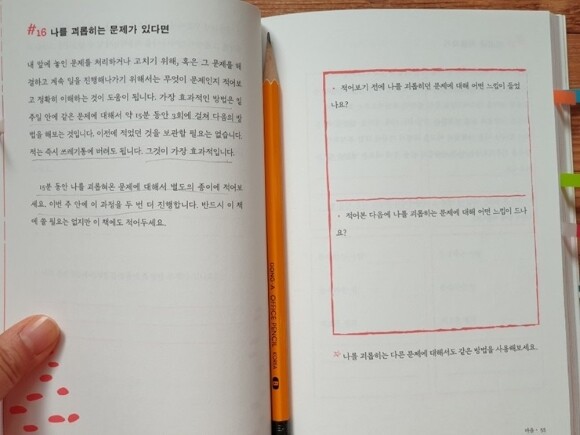 #16 나를 괴롭히는 문제가 있다면
내 앞에 놓인 문제를 처리하거나 고치기 위해, 혹은 그 문제를 해
결하고 계속 일을 진행해나가기 위해서는 무엇이 문제인지 적어보
고 정확히 이해하는 것이 도움이 됩니다. 가장 효과적인 방법은 일
주일 안에 같은 문제에 대해서 약 15분 동안 3회에 걸쳐 다음의 방
법을 해보는 것입니다. 이전에 적었던 것을 보관할 필요는 없습니다.
적는 즉시 쓰레기통에 버려도 됩니다. 그것이 가장 효과적입니다.
15분 동안 나를 괴롭혀온 문제에 대해서 별도의 종이에 적어보
세요. 이번 주 안에 이 과정을 두 번 더 진행합니다. 반드시 이 책
에 쓸 필요는 없지만 이 책에도 적어두세요.
DONG-A OFFICE PENCIL KOREA B
• 적어보기 전에 나를 괴롭히던 문제에 대해 어떤 느낌이 들었
나요?
• 적어본 다음에 나를 괴롭히는 문제에 대해 어떤 느낌이 드나
요?
나를 괴롭히는 다른 문제에 대해서도 같은 방법을 사용해보세요.
마음 •